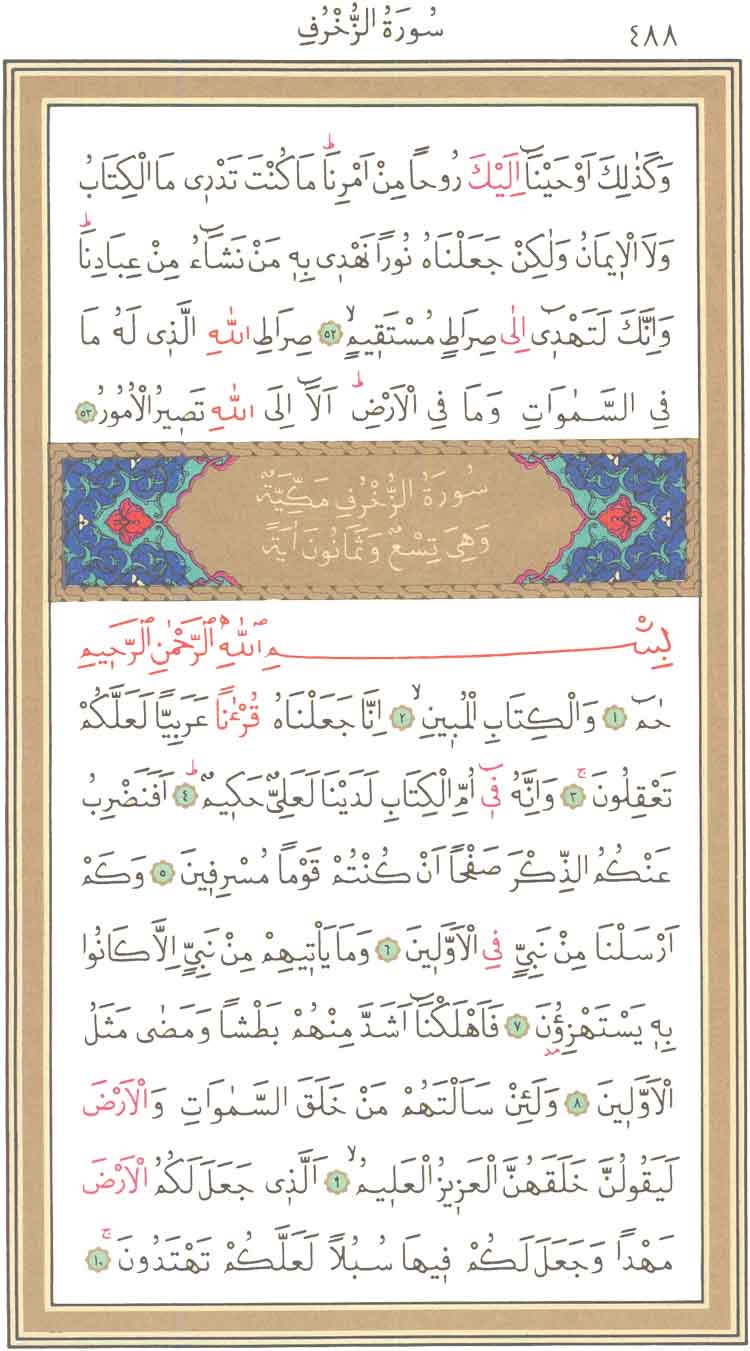 سُورَةُ الزُّخْرُفِ ٤٨٨
وَكَذٰلِكَ اَوْحَيْنَٓا اِلَيْكَ رُوحاً مِنْ اَمْرِنَاۜ مَا كُنْتَ تَدْر۪ى مَا الْكِتَابُ
وَلَا الْا۪يمَانُ وَلٰكِنْ جَعَلْنَاهُ نُوراً نَهْد۪ى بِه۪ مَنْ نَشَٓاءُ مِنْ عِبَادِنَاۜ
وَاِنَّكَ لَتَهْد۪ٓى اِلٰى صِرَاطٍ مُسْتَق۪يمٍۙ ٥٢ صِرَاطِ اللّٰهِ الَّذ۪ى لَهُ مَا
فِى السَّمٰوَاتِ وَمَا فِى الْاَرْضِۜ اَلَٓا اِلَى اللّٰهِ تَص۪يرُ الْاُمُورُ ٥٣
سُورَةُ الزُّخْرُفِ مَكِّيَّةٌ
وَهِىَ تِسْعٌ وَثَمَانُونَ اٰيَةً
بِسْمِ اللّٰهِ الرَّحْمٰنِ الرَّح۪يمِ
حٰمٓ ١ وَالْكِتَابِ الْمُب۪ينِۙ ٢ اِنَّا جَعَلْنَاهُ قُرْءٰناً عَرَبِيًّا لَعَلَّكُمْ
تَعْقِلُونَۚ ٣ وَاِنَّهُ ف۪ٓى اُمِّ الْكِتَابِ لَدَيْنَا لَعَلِىٌّ حَك۪يمٌۜ ٤ اَفَنَضْرِبُ
عَنْكُمُ الذِّكْرَ صَفْحاً اَنْ كُنْتُمْ قَوْماً مُسْرِف۪ينَ ٥ وَكَمْ
اَرْسَلْنَا مِنْ نَبِىٍّ فِى الْاَوَّل۪ينَ ٦ وَمَا يَأْت۪يهِمْ مِنْ نَبِىٍّ اِلَّا كَانُوا
بِه۪ يَسْتَهْزِؤُ۫نَ ٧ فَاَهْلَكْنَٓا اَشَدَّ مِنْهُمْ بَطْشاً وَمَضٰى مَثَلُ
الْاَوَّل۪ينَ ٨ وَلَئِنْ سَاَلْتَهُمْ مَنْ خَلَقَ السَّمٰوَاتِ وَالْاَرْضَ
لَيَقُولُنَّ خَلَقَهُنَّ الْعَز۪يزُ الْعَل۪يمُۙ ٩ اَلَّذ۪ى جَعَلَ لَكُمُ الْاَرْضَ
مَهْداً وَجَعَلَ لَكُمْ ف۪يهَا سُبُلاً لَعَلَّكُمْ تَهْتَدُونَۚ ١٠